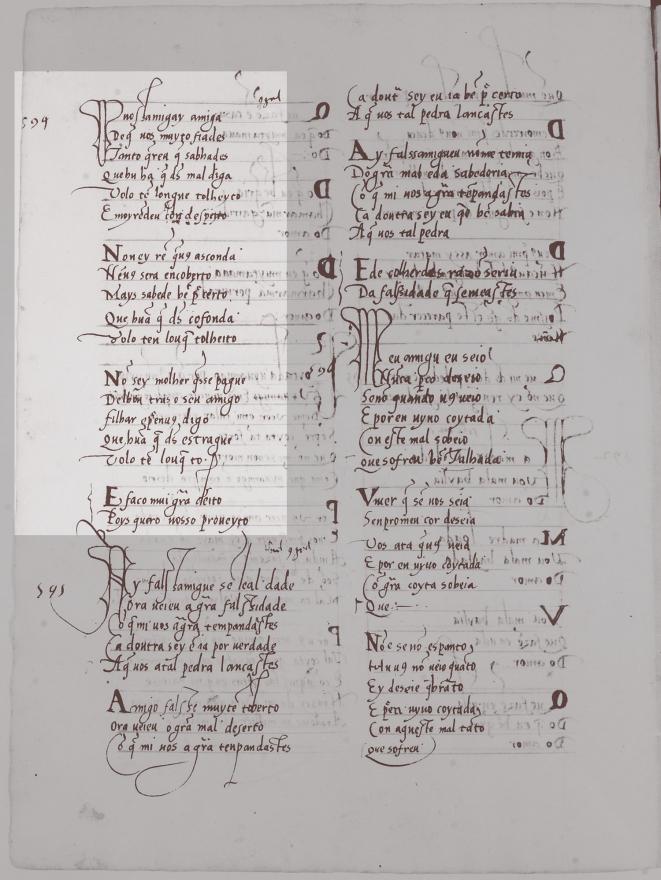 594
Pnos famigay amiga
Deq̃ uos muyto fiades
Tanto q̃reu q̃ sabhades
Quehuã q̃ ds mal diga
Uolo tẽ louque tolheyto
E moyredeu cõn despeyto
Non ey rẽ qu9 asconda
Nẽu9 sera encoberto
Mays sabede bẽ p̃ çerto
Que huã q̃ ds cofonda
Uolo ten louq̃ tolheito
No sey molher q̃sse pague
Delhi outras o seu amigo
Filhar
Que huã q̃ ds estrague
Uolo tẽ louq̃ to
E faço mui grã dcito
Poys quero uosso proueyto
595
Ay fals samigue se leal dade
Ora ueieu a grã falssidade
Cõ q̃ mi uos agrã tempandastes
Ca doutra sey eu ia por uerdade
A q̃ uos atal pedra lancastes
Amigo falsse muyte
Ora ueieu o grã mal deserto
Cõ q̃ mi uos a grã tenpandastes
Ca dout̃ sey eu ia bẽ p̃ certo
A q̃ uos tal pedra lancastes
Ay falssamigueu nõ me temia
Do grã mal eda sabedoria
Cõ q̃ mi uos a grã tẽpandastes
Ca doutra sey eu q̃o bẽ sabia
A q̃ uos tal pedra
E de colherdes razõ seria
Da falssidade q̃ semeastes
Meu amigu eu seio
Nuca p̃co deseio
Seno quando u9 ueio
E poren uyuo coytada
Con este mal sobeio
que sofreu bẽ Talhada
Viuer q̃ sẽ uos seia
Senpromeu cor deseia
Uos ata qu9 ueia
E por en uyuo coytada
Cõ grã coyta sobeia
Que
Nõ e se no espanto
hu u9 no ueio quãto
Ey deseie q̃brãto
E pẽn uyuo coytada
Con aqueste mal tãto
que sofreu